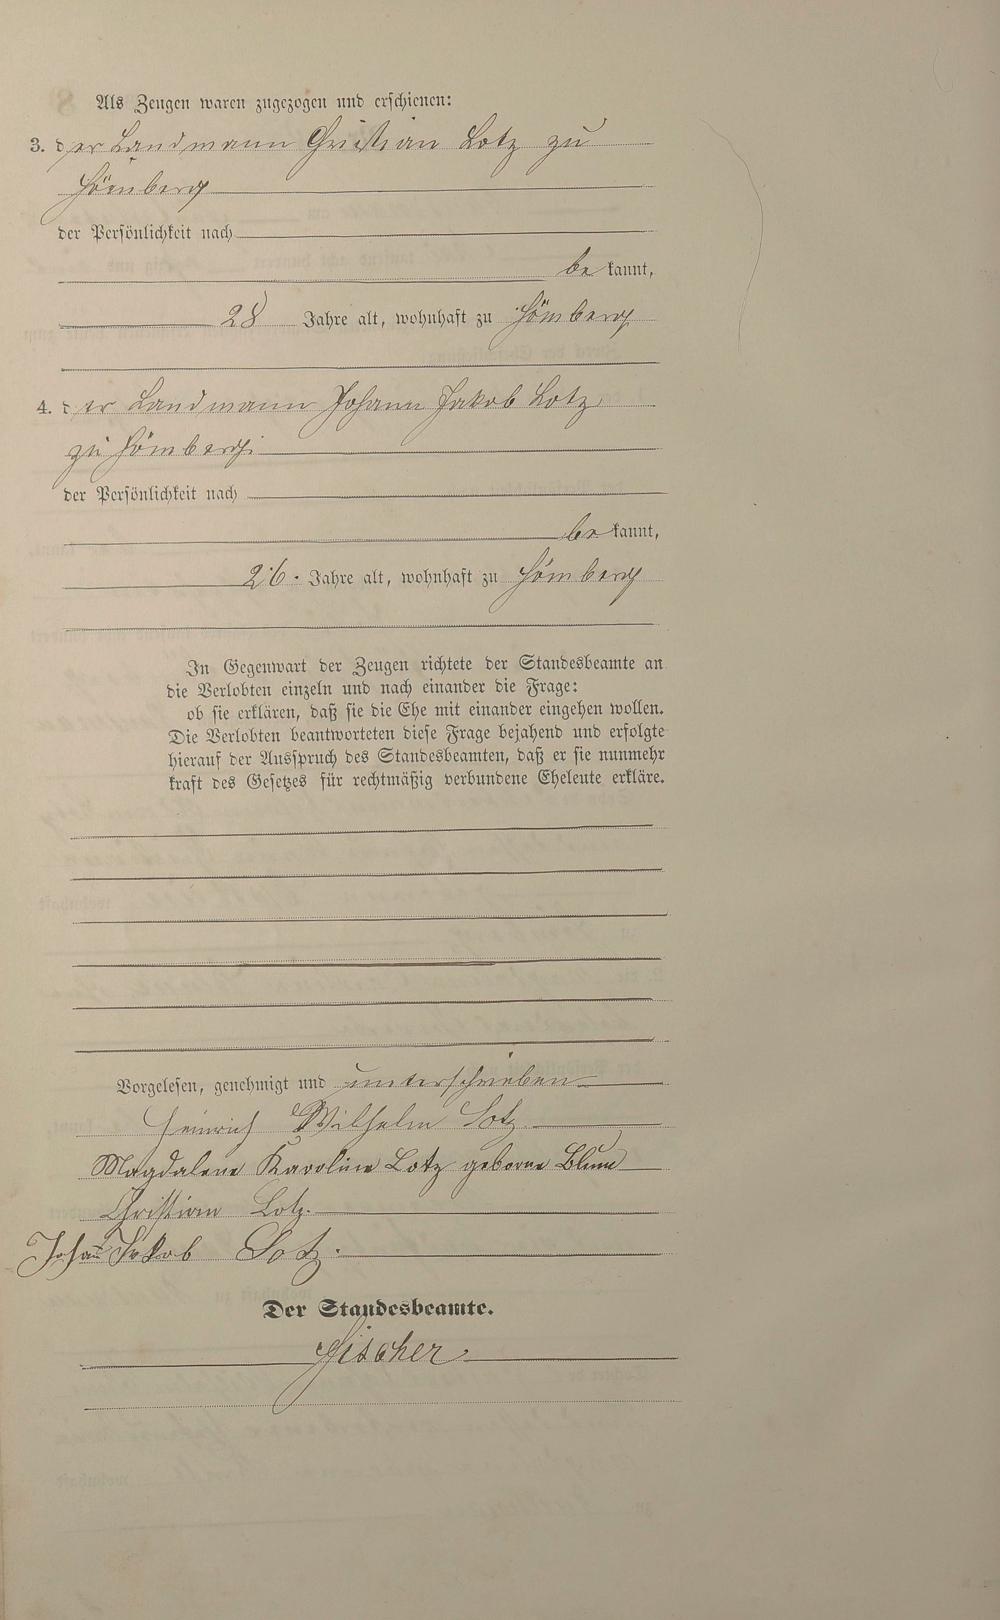 Als Zeugen waren zugezogen und erschienen:
3. der Landmann Christian Lotz zu
Hömberg
der Persönlichkeit nach
be kannt,
28 Jahre alt, wohnhaft zu Hömberg
4. der Landmann Johann Jakob Lotz
zu Hömberg
der Persönlichkeit nach
be kannt,
26. Jahre alt, wohnhaft zu Hömberg
In Gegenwart der Zeugen richtete der Standesbeamte an
die Verlobten einzeln und nach einander die Frage:
ob sie erklären, daß sie die Ehe mit einander eingehen wollen.
Die Verlobten beantworteten diese Frage bejahend und erfolgte
hierauf der Ausspruch des Standesbeamten, daß er sie nunmehr
kraft des Gesetzes für rechtmäßig verbundene Eheleute erkläre.
Vorgelesen, genehmigt und unterschrieben
Heinrich Wilhelm Lotz
Magdalene Karoline Lotz geborne Blum
Christian Lotz.
Johann Jakob Lotz.
Der Standesbeamte.
Fischer.